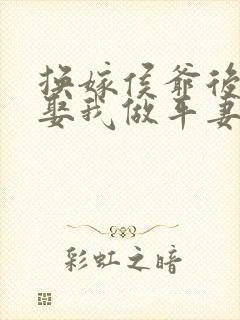 换嫁侯爷后
娶我做平妻
彩虹之暗